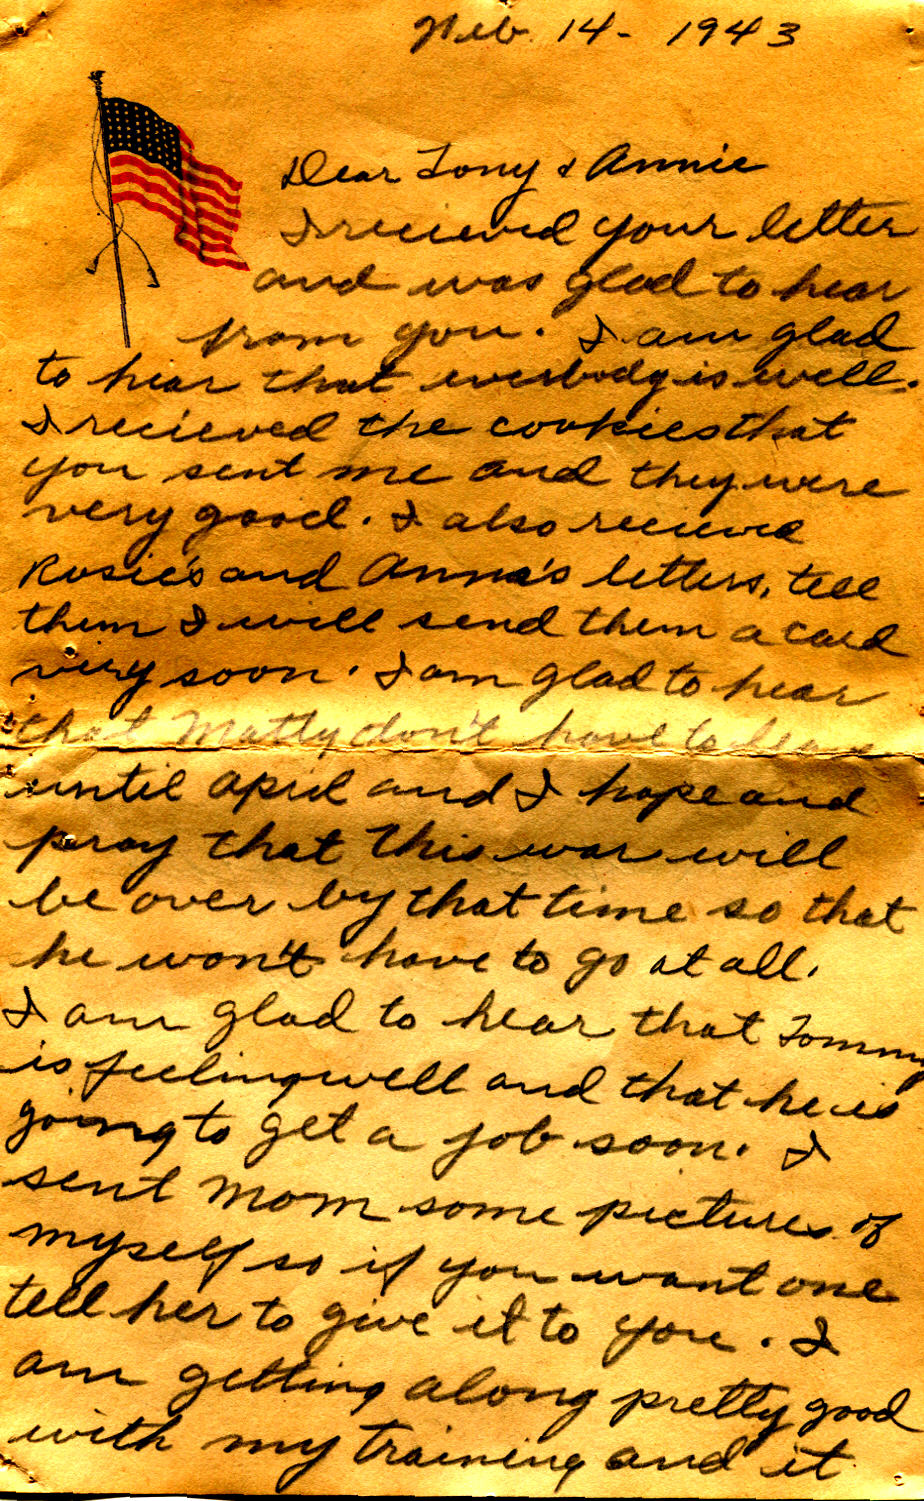 Feb. 14 - 1943
Dear Tony & Annie
I recieved your letter
and was glad to hear
from you. I am glad
to hear that everbody is well.
I recieved the cookies that
you sent me and they were
very good. I also recieved
Rosie's and Anna's letters, tell
them I will send them a card
very soon. I am glad to hear
that Matty don't have to leave
until April and I hope and
pray that this war will
be over by that time so that
he won't have to go at all.
I am glad to hear that Tommy
is feeling well and that he is
going to get a job soon. I
sent Mom some pictures of
myself so if you want one
tell her to give it to you. I
am getting along pretty good
with my training and it